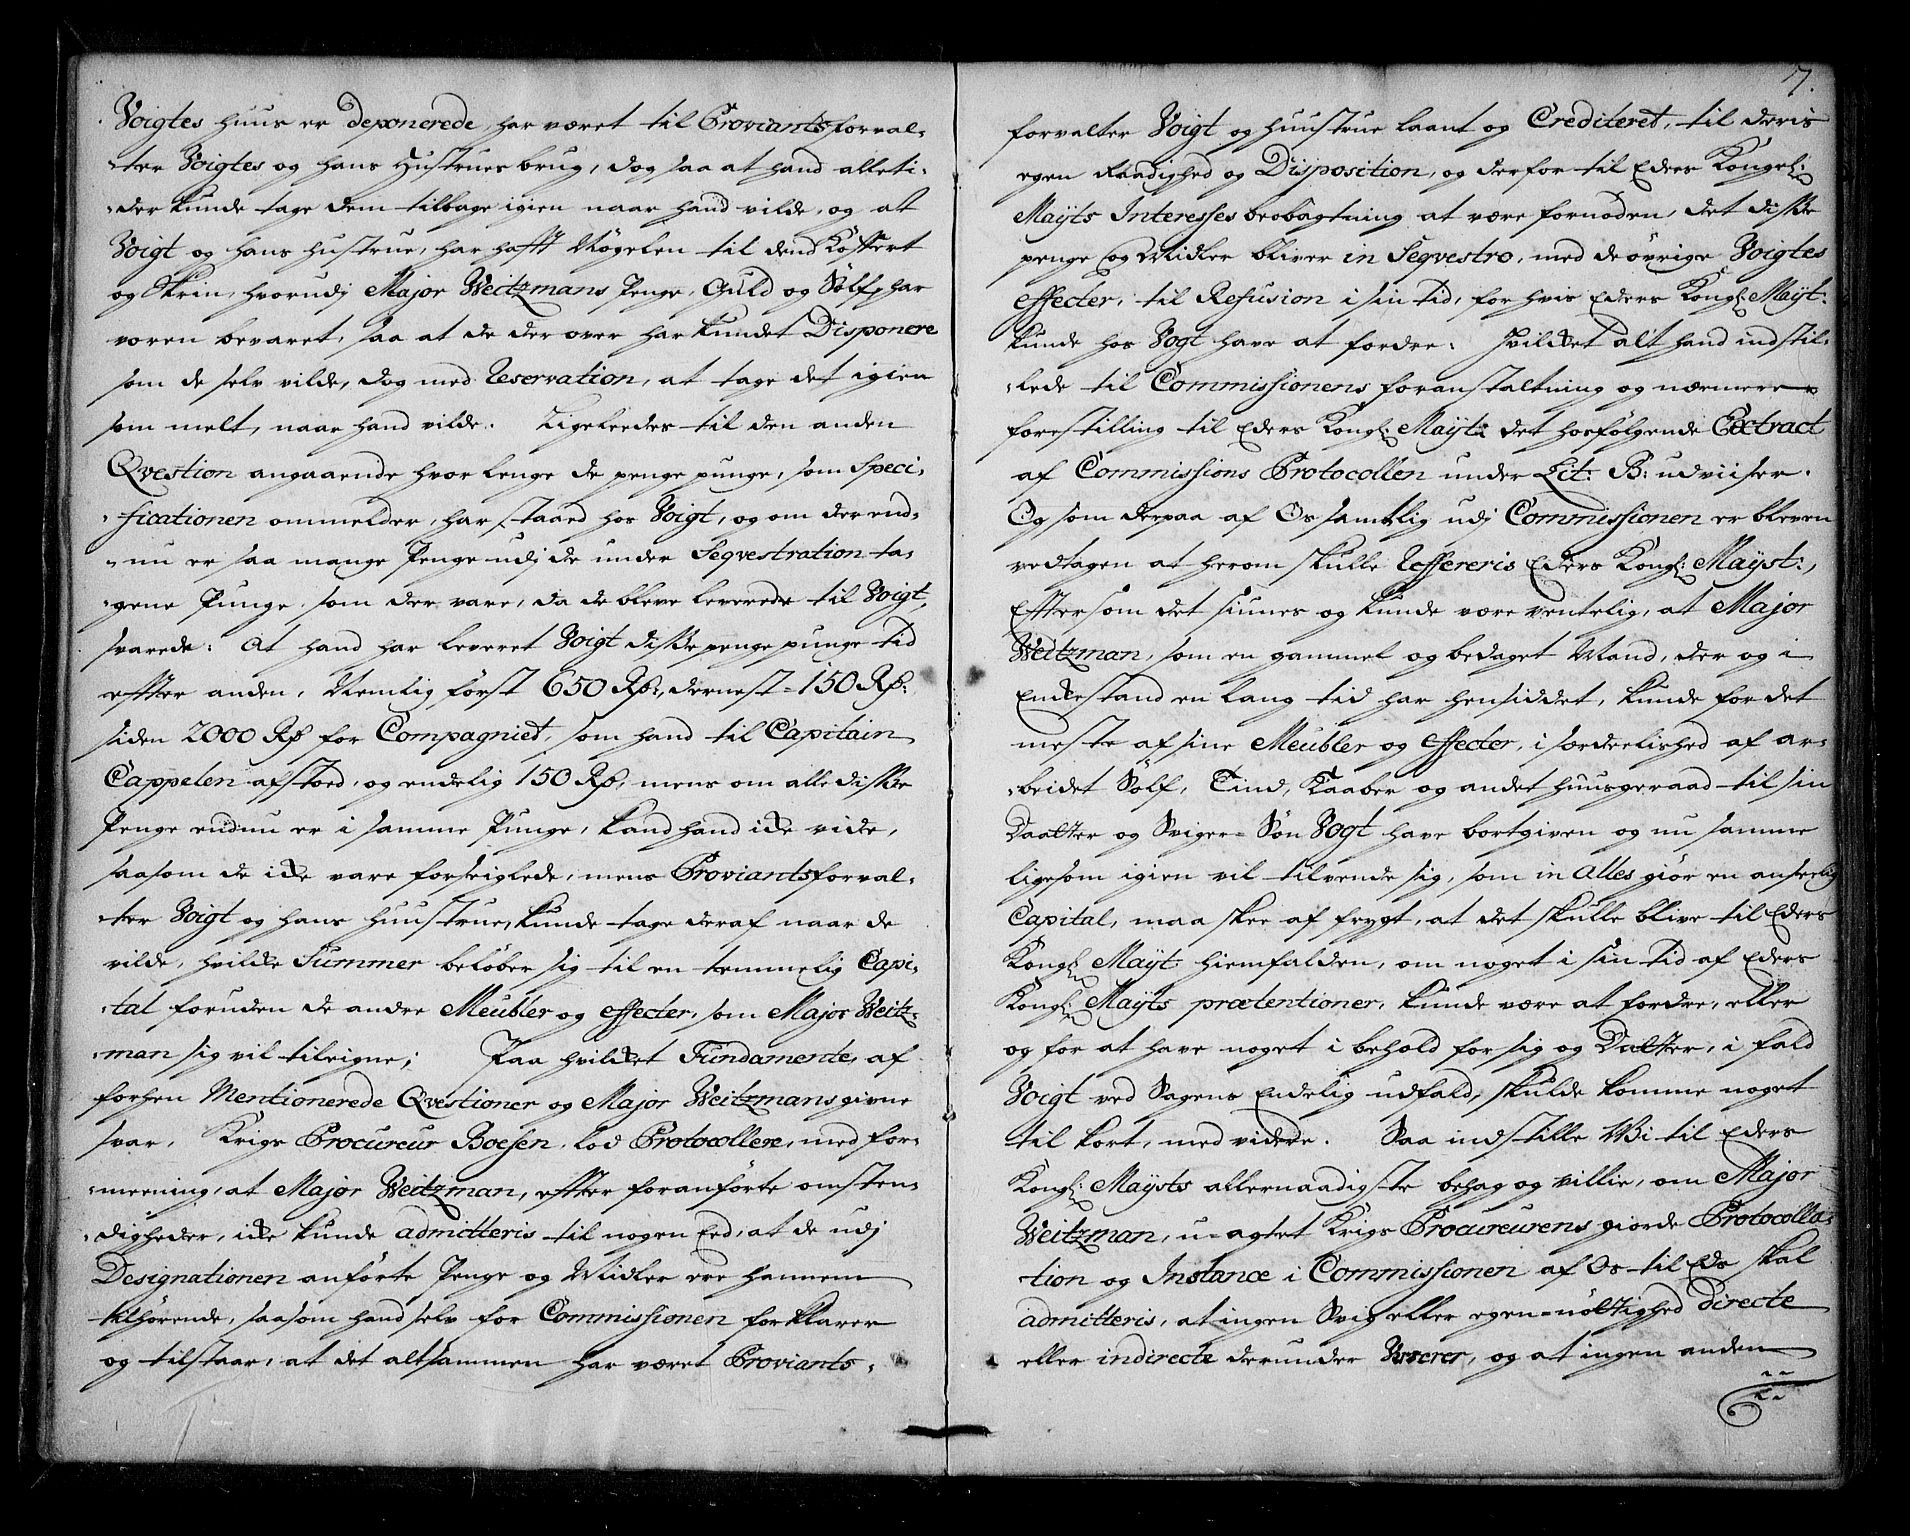 Voigtes huus er deponerede, har været til Proviantsforval-
-ter Voigtes og hans Hustrues brug, dog saa at hand alleti-
-der kunde tage dem tilbage igien naar hand vilde, og at
Voigt og hans hustrue, har hafft Nögelen til dend Köffert
og Skrin, hvorudj Major Weitzmans Penge, Guld og Sölf, har
voren bevaret, saa at de der over har kundet Disponere
som de selv vilde, dog med Reservation, at tage det igien
som melt, naar hand vilde. Ligeleedes til den anden
Qvestion angaaende hvor lenge de penge punge, som Speci-
-ficationen ommelder, har staaed hos Voigt, og om der end-
-nu er saa mange Penge udj de under Seqvestration ta-
-gene Punge, som der vare, da de bleve leverede til Voigt,
svarede: At hand har leveret Voigt disse penge punge tid
effter anden, Nemlig först 650 Rd:, dernest = 150 Rd:
siden 2000 Rd for Compagniet, som hand til Capitain
Cappelen afstoed, og endelig 150 Rd, mens om alle disse
Penge endnu er i samme Punge, kand hand icke vide,
saasom de icke vare forseiglede, mens Proviantsforval-
-ter Voigt og hans huustrue, kunde tage deraf naar de
vilde, hvilke Summer beløber sig til en temmelig Capi-
-tal foruden de andre Meubler og effecter, som Major Weitz-
-man sig vil tileigne; Paa hvilket Fundamente, af
forhen Mentionerede Qvestioner og Major Weitzmans givne
svar, Krigs Procureur Boesen, lod Protocollere, med for-
-meening, at Major Weitzman, effter foranförte omsten-
-digheder, icke kunde admitteris til nogen Eed, at de udj
Designationen anförte Penge og Midler ere hannem
tilhörende, saasom hand selv for Commissionen forklarer
og tilstaar, at det altsammen har været Proviants-
7.
forvalter Voigt og huustrue laant og Crediteret, til deris
egen Raadighed og Disposition, og derfor til Eders Kongel:
Mayts Interesses beobagtning at være fornöden, det disse
penge og Midler bliver in Seqvestro, med de övrige Voigtes
effecter, til Refusion i sin tid, for hvis Eders Kongl: Mayt:
kunde hos Vogt have at fordre. Hvilket alt hand indstil-
-lede til Commissionens foranstaltning og nærmere
forestilling til Eders Kongl: Mayt: det hosfölgende Extract
af Commissions Protocollen under Lit: B: udviiser.
Og som derpaa af Os samtlig udj Commissionen er bleven
vedtagen at herom skulle Reffereris Eders Kongl: Mayst:,
Efftersom det siunes og kunde være ventelig, at Major
Weitzman, som en gammel og bedaget Mand, der og i
Enkestand en lang tid har hensiddet, kunde for det
meste af sine Meubler og effecter, i særdeelished af ar-
-beidet Sölf, Tind, Kaaber og andet huusgeraad til sin
Daatter og Sviger=Sön Vogt have bortgiven og nu samme
ligesom igien vil tilvende sig, som in Alles giör en anseelig
Capital, maa skee af frygt, at det skulle blive til Eders
Kongl: Mayt: hiemfalden, om noget i sin tid af Eders
Kongl: Mayts prætentioner, kunde være at fordre, eller
og for at have noget i behold for sig og Datter, i fald
Voigt ved Sagens Endelig udfald, skulde komme noget
til kort, med videre. Saa indstille Wi til Eders
Kongl: Maysts allernaadigste behag og villie, om Major
Weitzman, u-agtet Krigs Procureurens giorde Protocolla-
-tion og Instance i Commissionen af Os til Eds skal
admitteris, at ingen Svig eller egen-nöttighed directe
eller indirecte derunder Verserer, og at ingen anden